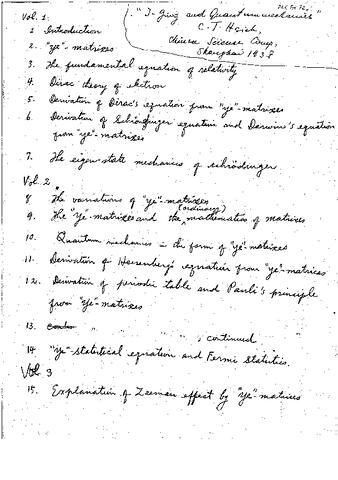 Vol. 1:
"I-Ging and Quantummechanics"
C. T. Hsieh,
Chinese Science Corp,
Shanghai 1938
1 Introduction
2. "ye"-matrixes
3. The fundamental equation of relativity
4. Dirac theory of electron
5. Derivation of Dirac's equation from "ye"-matrixes
6. Derivation of Schrödinger equation and Darwin's equation
from "ye"-matrixes
7. The eigen-state mechanics of schrödinger.
Vol. 2
8. The variations of "ye"-matrixes
9. The "ye"-matrixes and the (ordinary) mathematics of matrixes
10. Quantum mechanics in the form of "ye"-matrixes
11. Derivation of Heisenberg's equation from "ye"-matrices
12. Derivation of periodic table and Pauli's principle
from "ye"-matrixes
13. " " , continued
14 "ye"-statistical equation and Fermi Statistics.
Vol. 3
15. Explanation of Zeeman effect by "ye"-matrixes